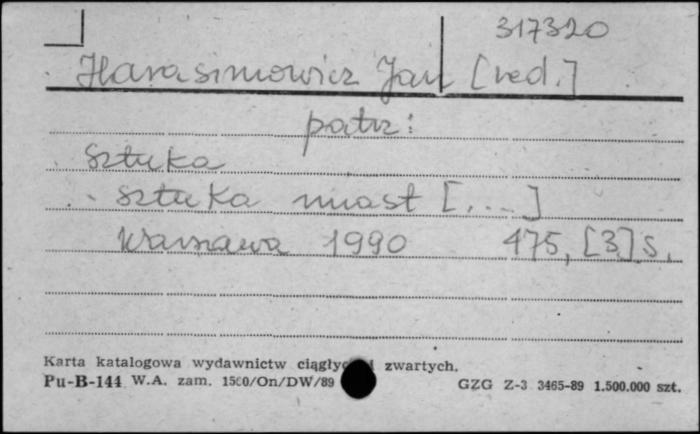 317320
Harasimowicz Jan [red.]
patrz:
Sztuka
sztuka miast [...]
Warszawa 1990 475, [3] s.
Karta katalogowa wydawnictw ciągłych i zwartych.
Pu-B-144 W.A. zam. 1560/On/DW/89 GZG Z-3 3465-89 1.500.000 szt.